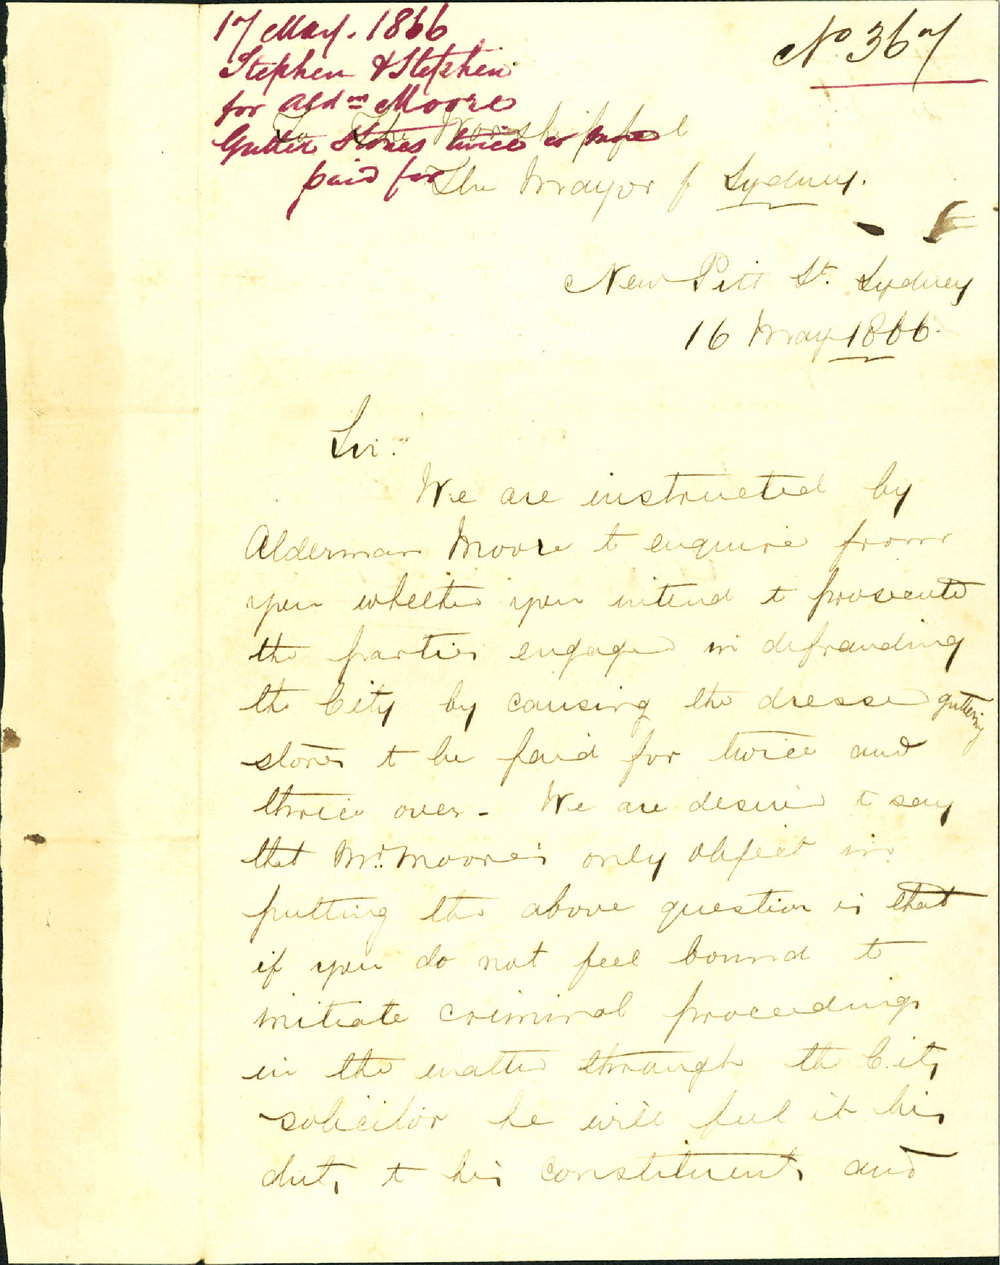 17 May. 1866
Stephen & Stephen
for Aldmn Moore
Gutter Stones twice or more
paid for
No 367
To The Worshipful
The Mayor of Sydney.
New Pitt St. Sydney
16 May 1866.
Sir.
We are instructed by
Alderman Moore to enquire from
you whether you intend to prosecute
the parties engaged in defrauding
the City by causing the dressed guttering
stones to be paid for twice and
thrice over - We are desired to say
that Mr. Moore's only object in
putting the above question is that
if you do not feel bound to
initiate criminal proceedings
in the matter through the City
solicitor he will feel it his
duty to his constituents and